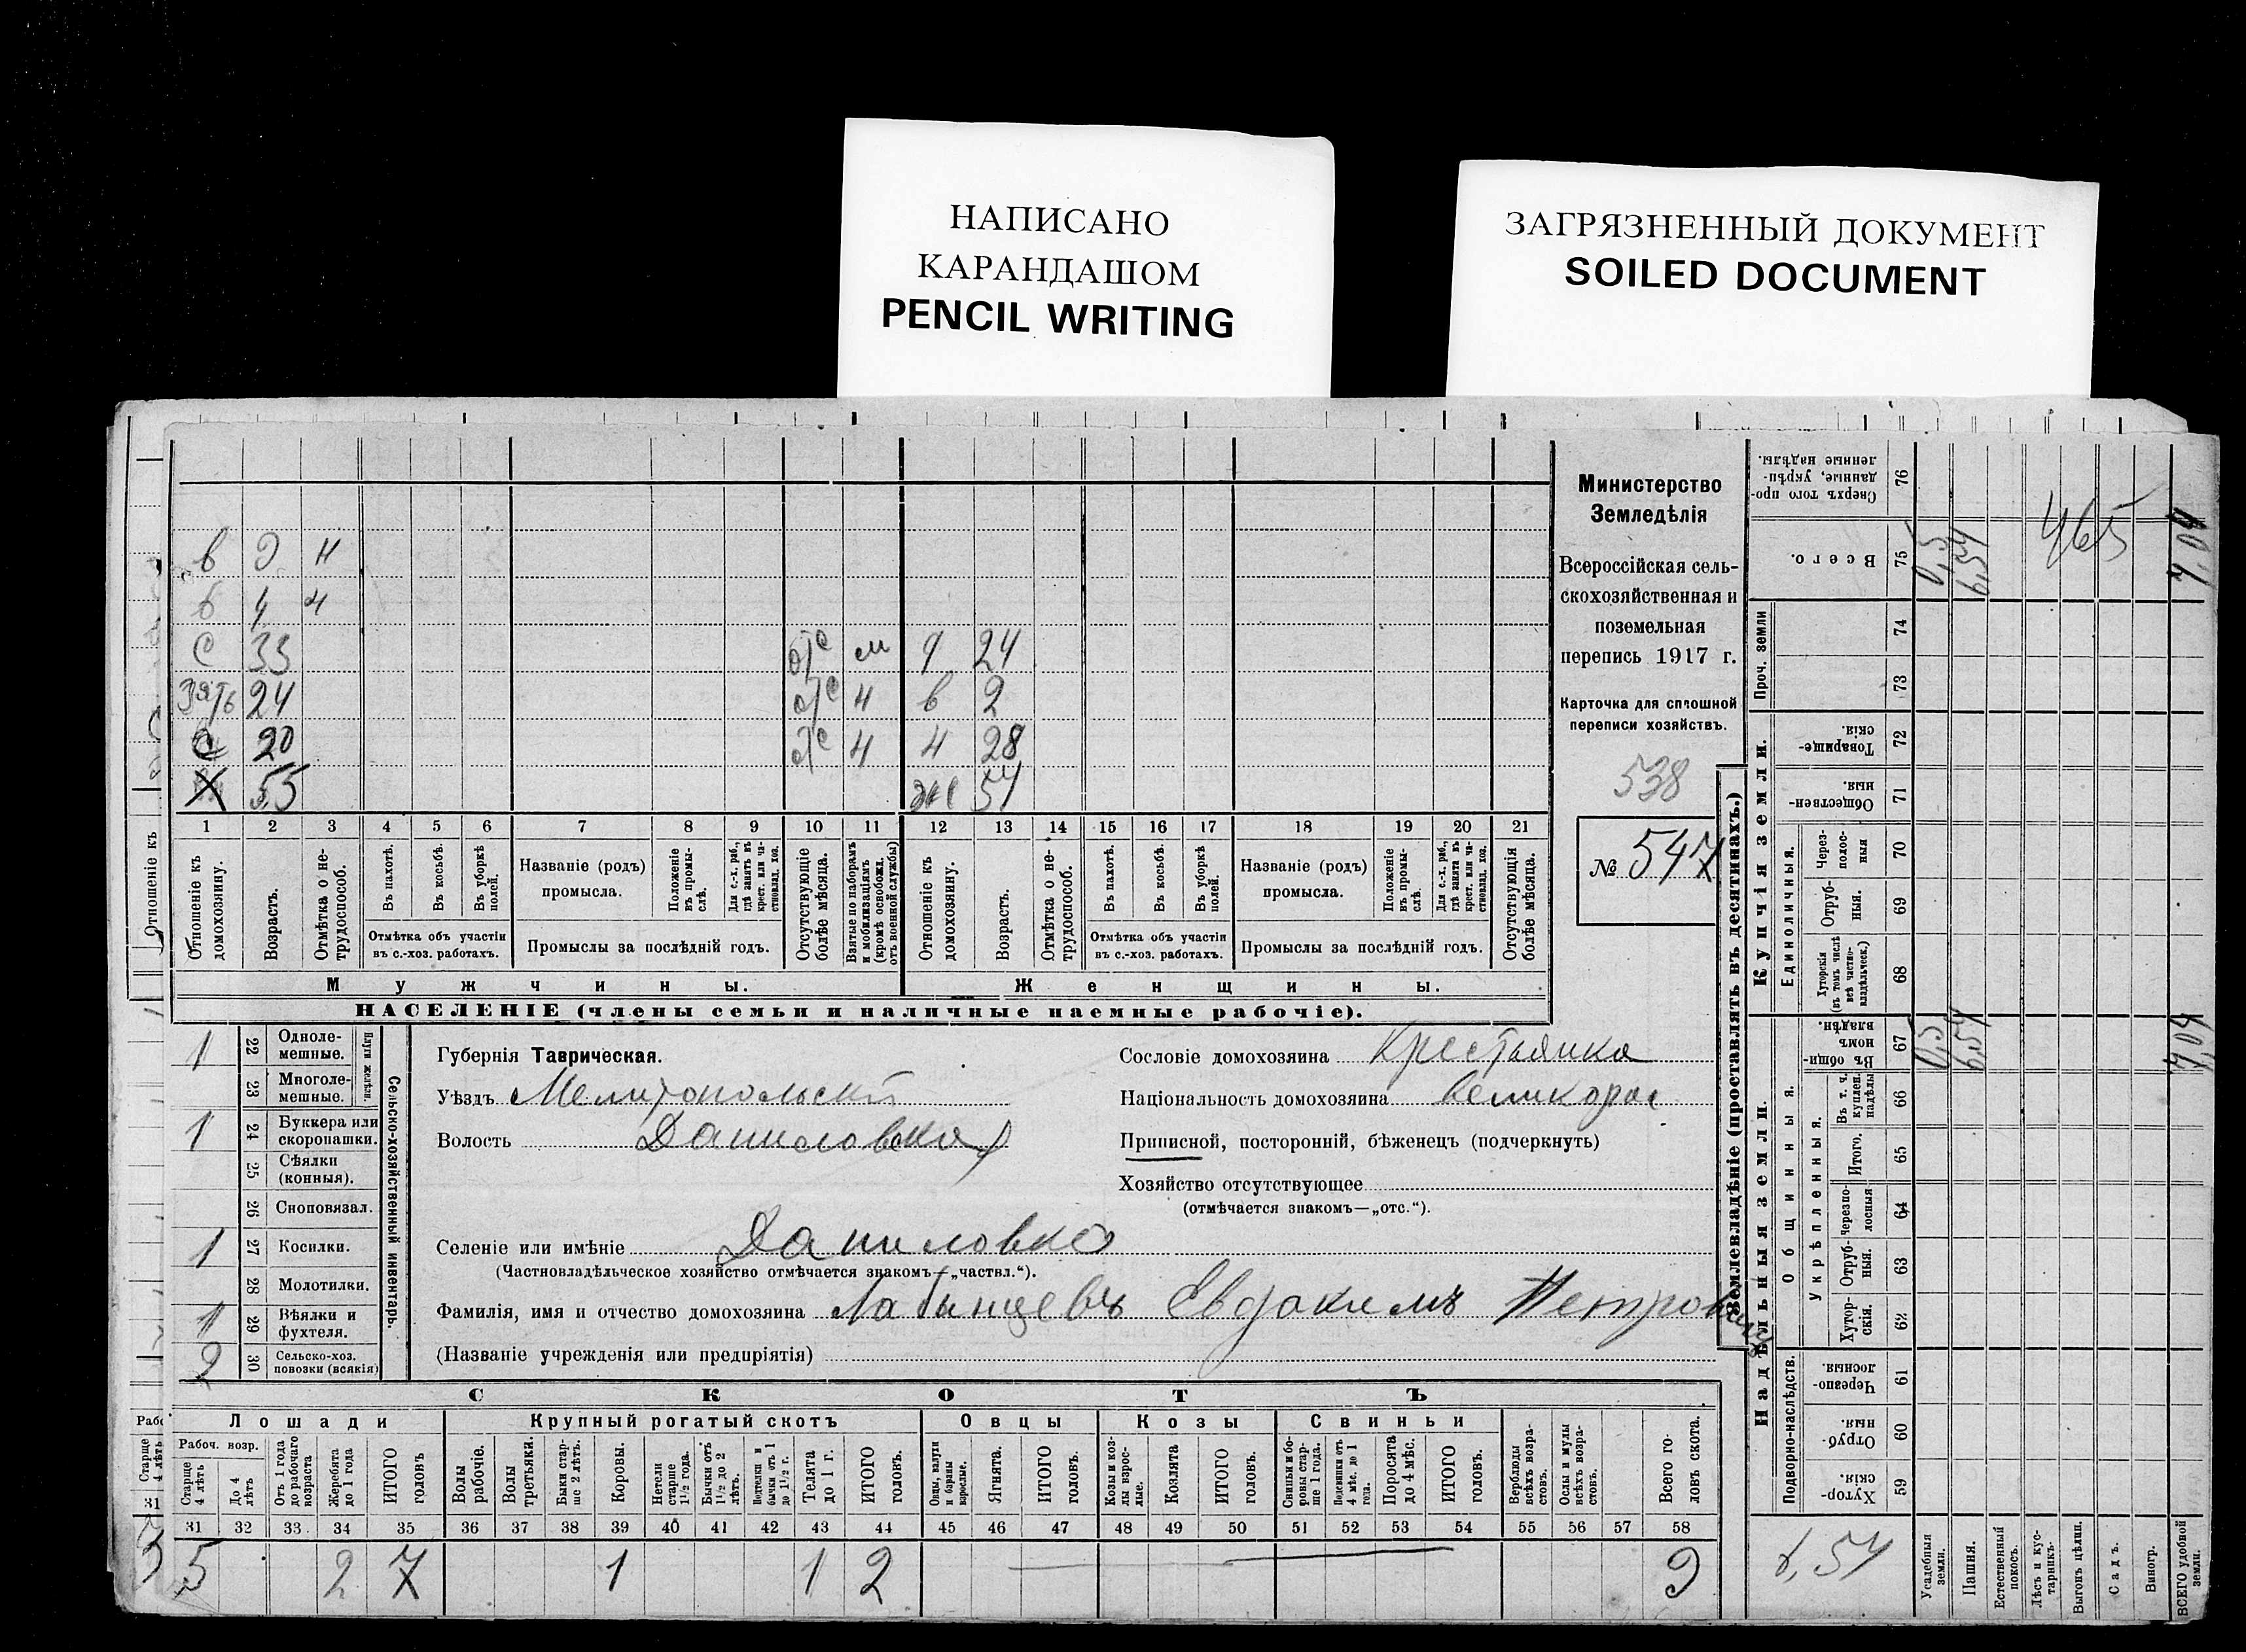 НАПИСАНО
КАРАНДАШОМ
PENCIL WRITING
ЗАГРЯЗНЕННЫЙ ДОКУМЕНТ
SOILED DOCUMENT
С 33 отс м 24
Зять 24 отс ч в 2
С 20 отс ч 28
Х 55 же
1 2 3 4 5 6 7 8 9 10 11 12 13 14 15 16 17 18 19 20 21
Отношеніе къ домохозяину.
Возрастъ.
Отмѣтка о нетрудоспособ.
Въ пахотѣ.
Въ косьбѣ.
Въ уборкѣ полей.
Отмѣтка объ участіи въ с.-хоз. работахъ.
Названіе (родъ) промысла.
Положеніе въ промыслѣ.
Для с.-х. раб., гдѣ занятъ въ крест. или частновлад. хоз.
Промыслы за послѣдній годъ.
Отсутствующіе болѣе мѣсяца.
Взятые по наборамъ и мобилизаціямъ (кромѣ освобожд. отъ военной службы)
Отношеніе къ домохозяину.
Возрастъ.
Отмѣтка о нетрудоспособ.
Въ пахотѣ.
Въ косьбѣ.
Въ уборкѣ полей.
Отмѣтка объ участіи въ с.-хоз. работахъ.
Названіе (родъ) промысла.
Положеніе въ промыслѣ.
Для с.-х. раб., гдѣ занята въ крест. или частновлад. хоз.
Промыслы за послѣдній годъ.
Отсутствующія болѣе мѣсяца.
Мужчины.
Женщины.
НАСЕЛЕНІЕ (члены семьи и наличные наемные рабочіе).
Министерство
Земледѣлія
Всероссійская сель-
скохозяйственная и
поземельная
перепись 1917 г.
Карточка для сплошной
переписи хозяйствъ.
538
№ 547
1 22 Одноле-мешные.
23 Многоле-мешные.
Плуги желѣзн.
1 24 Буккера или скоропашки.
25 Сѣялки (конныя).
26 Сноповязал.
1 27 Косилки.
28 Молотилки.
1 29 Вѣялки и фухтеля.
2 30 Сельско-хоз. повозки (всякія)
Сельско-хозяйственный инвентарь.
Губернія Таврическая.
Уѣздъ Мелитопольскій
Волость Даниловская
Селеніе или имѣніе Даниловка
(Частновладѣльческое хозяйство отмѣчается знакомъ—„частвл.“).
Фамилія, имя и отчество домохозяина Лабинцевъ Евдокимъ Петровичъ
(Названіе учрежденія или предпріятія)
Сословіе домохозяина Крестьянка
Національность домохозяина Великорос
Приписной, посторонній, бѣженецъ (подчеркнуть)
Хозяйство отсутствующее
(отмѣчается знакомъ—„отс.“).
СКОТЪ
Лошади
Крупный рогатый скотъ
Овцы
Козы
Свиньи
Рабоч. возр.
Старше 4 лѣтъ
До 4 лѣтъ
Отъ 1 года до рабочаго возраста
Жеребята до 1 года
ИТОГО головъ
Волы рабочіе.
Волы третьяки.
Быки старше 2 лѣтъ.
Коровы.
Нетели старше 1 1/2 года.
Бычки отъ 1 1/2 до 2 лѣтъ.
Подтелки и бычки отъ 1 до 1 1/2 г.
Телята до 1 г.
ИТОГО головъ.
Овцы, валухи и бараны взрослые.
Ягнята.
ИТОГО головъ.
Козы и козлы взрослые.
Козлята
ИТОГО головъ.
Свиньи и боровы старше 1 года.
Подсвинки отъ 4 мѣс. до 1 года.
Поросята до 4 мѣс.
ИТОГО головъ.
Верблюды всѣхъ возрастовъ.
Ослы и мулы всѣхъ возрастовъ.
Всего головъ скота.
31 32 33 34 35 36 37 38 39 40 41 42 43 44 45 46 47 48 49 50 51 52 53 54 55 56 57 58
5 2 7 1 1 2 9
Землевладѣніе (проставлять въ десятинахъ.)
Надѣльныя земли.
Купчія земли.
Проч. земли
Подворно-наслѣдств.
Общинныя.
Укрѣпленныя.
Единоличныя.
59 Хуторскія.
60 Отрубныя.
61 Черезполосныя.
62 Хуторскія.
63 Отрубныя.
64 Черезполосныя
65 Итого.
66 Въ т. ч. куплен. надѣлы
67 Въ общинномъ владѣн.
68 Хуторскія (въ томъ числѣ всѣ частновладѣльческ.)
69 Отрубныя.
70 Черезполосныя
71 Общественныя.
72 Товарищескія.
73
74
75 Всего.
76 Сверхъ того проданные, укрѣпленные надѣлы.
Усадебныя земли.
Пашня.
Естественный покосъ.
Лѣсъ и кустарникъ.
Выгонъ цѣлин.
Садъ.
Виногр.
ВСЕГО удобной земли.
0,5 6,54 7,04
0,5 6,54 7,04
465